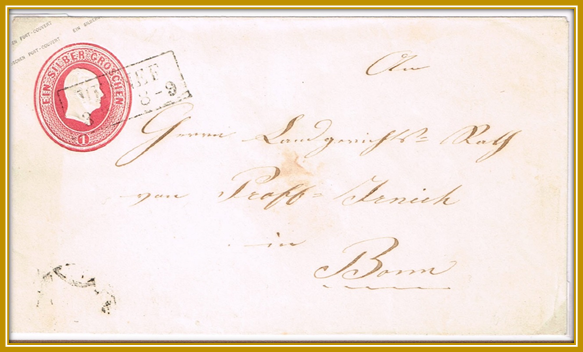 POST-COUVERT EIN SILBER
POST-COUVERT
EIN SILBER GROSCHEN
1
8-9
An
Herrn Landgerichts= Rath
von Proff=Irnich
in
Bonn